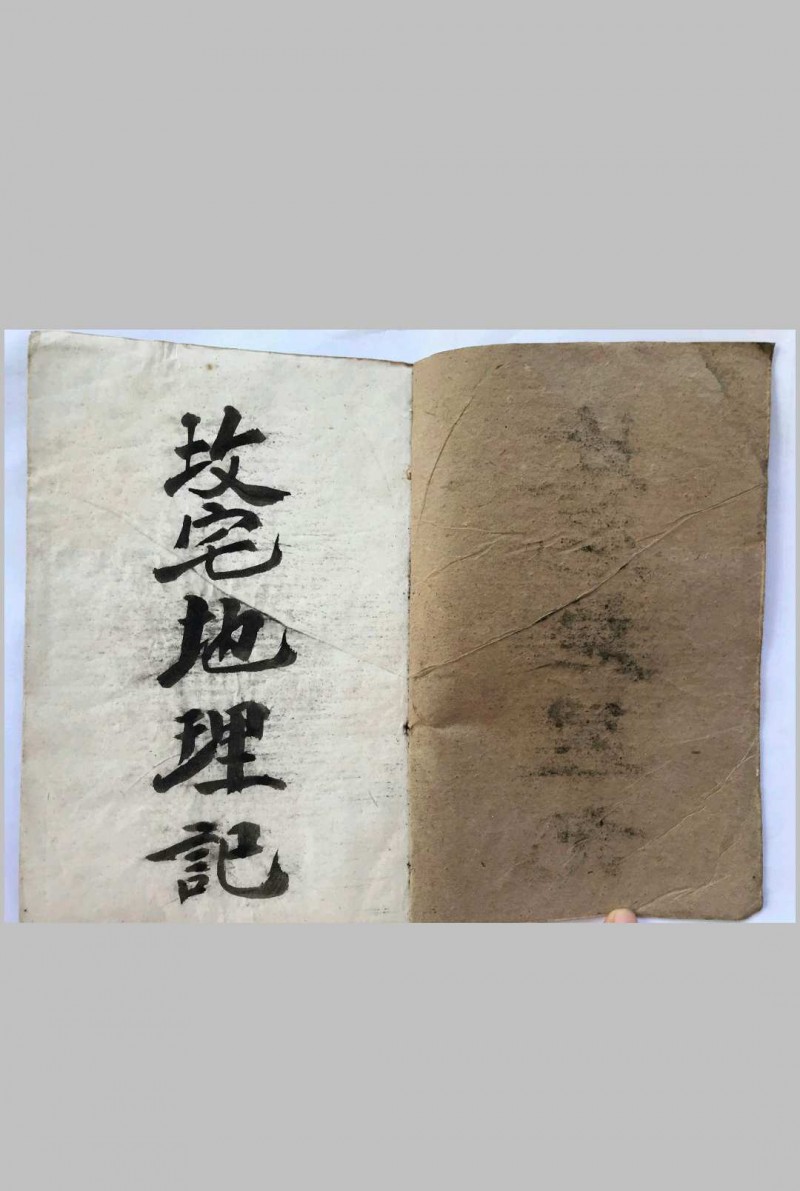 坆宅地理記